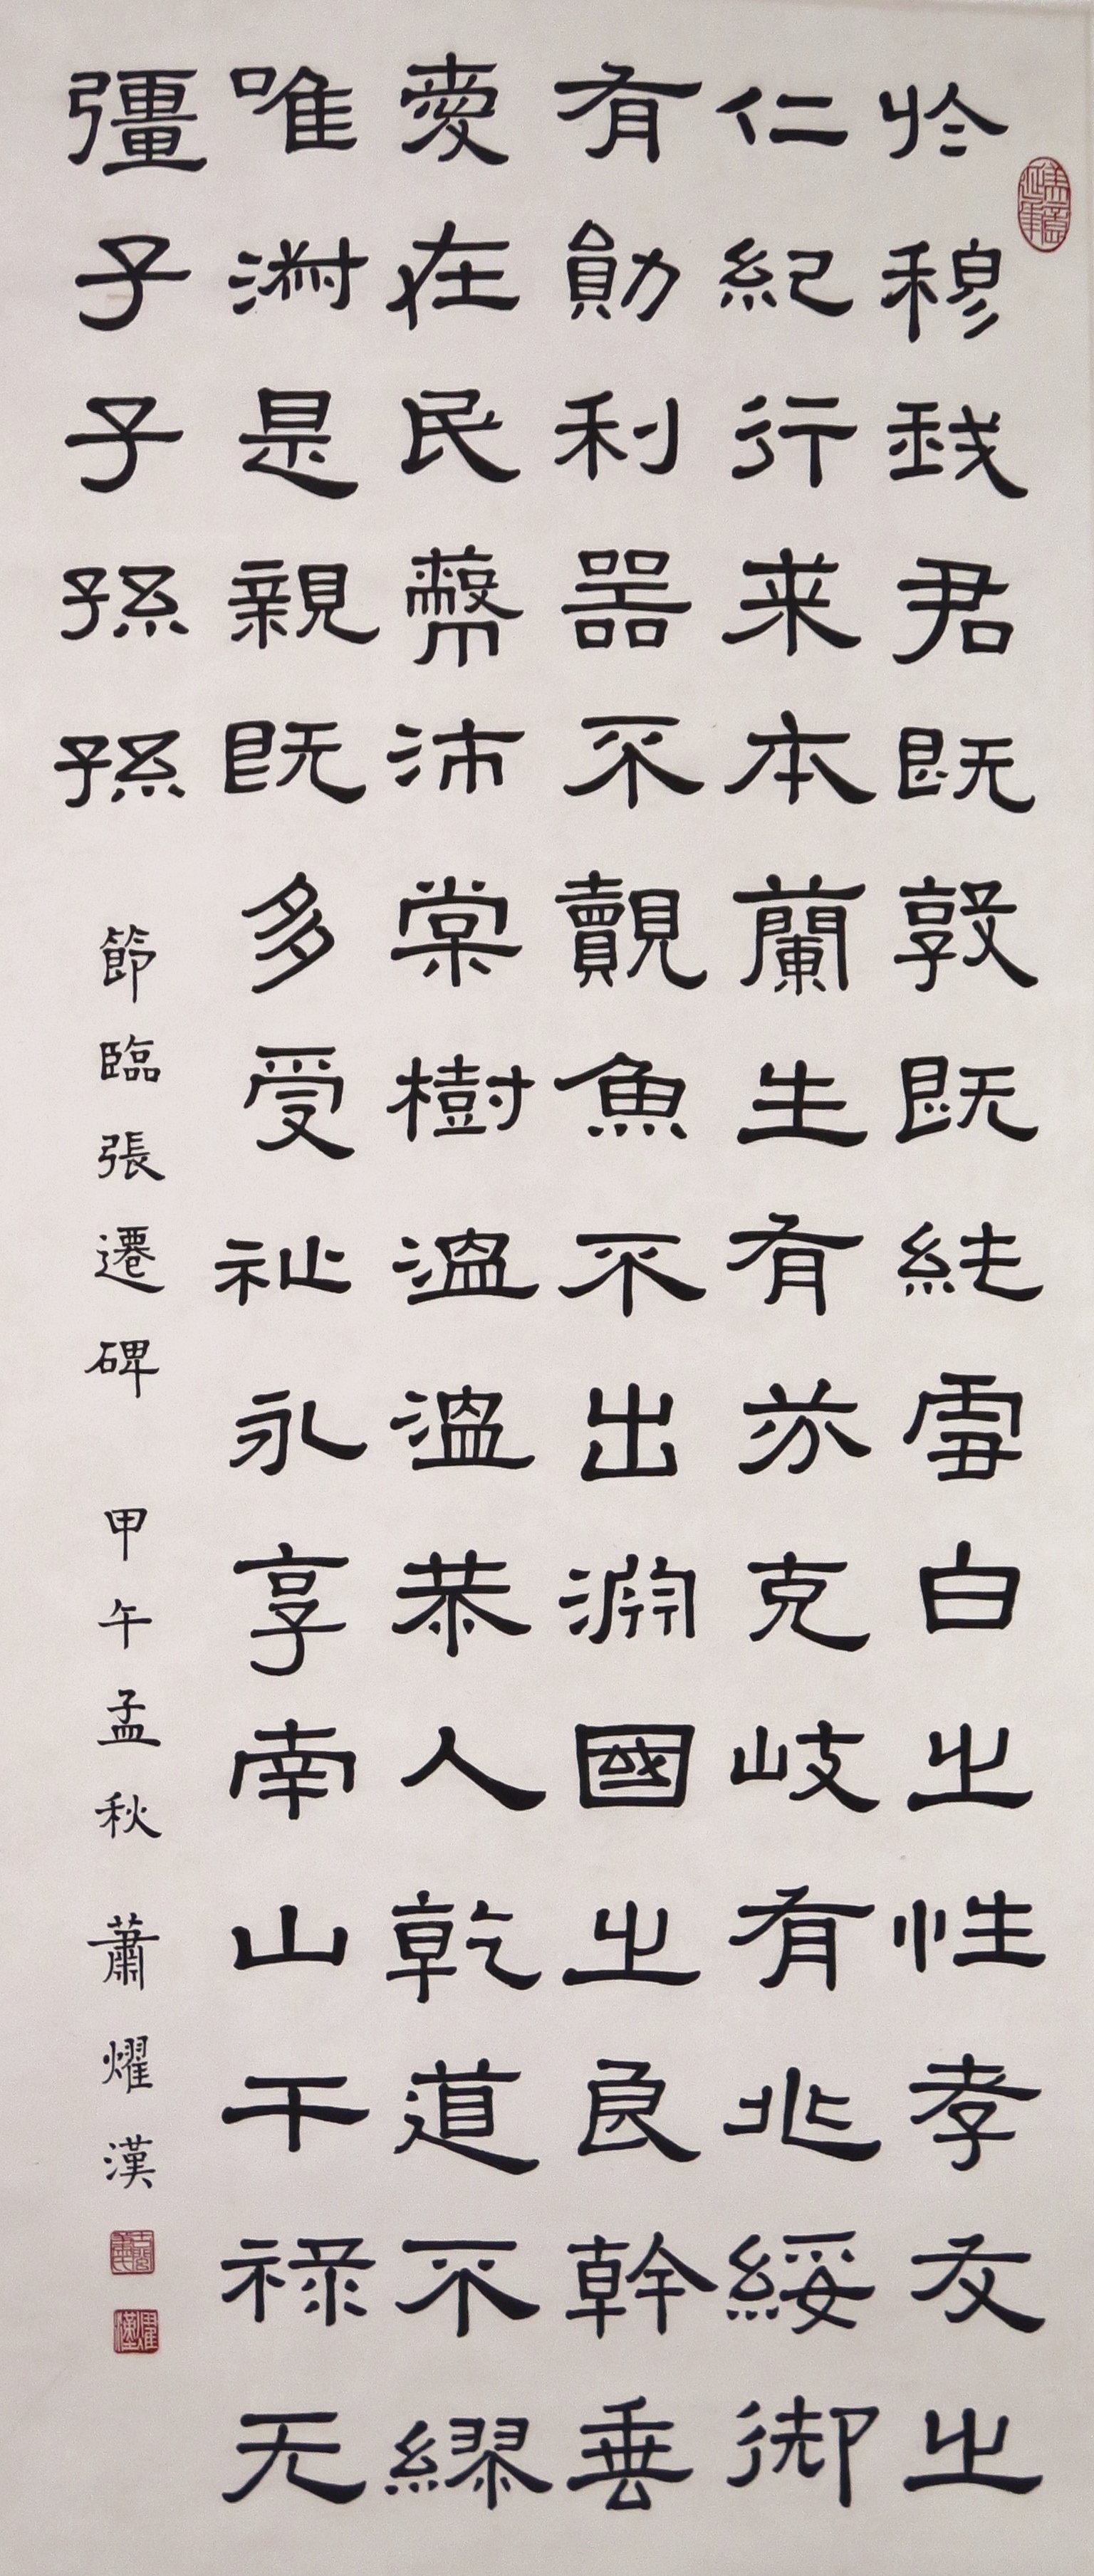 於穆我君既敦既純雪白之性孝友之
仁紀行来本蘭生有芬克岐有兆綏御
有勛利器不覿魚不出淵國之良幹垂
愛在民蔽沛棠樹温温恭人乾道不繆
唯淑是親既多受祉永享南山干禄无
彊子子孫孫
節臨張遷碑 甲午孟秋 蕭燿漢